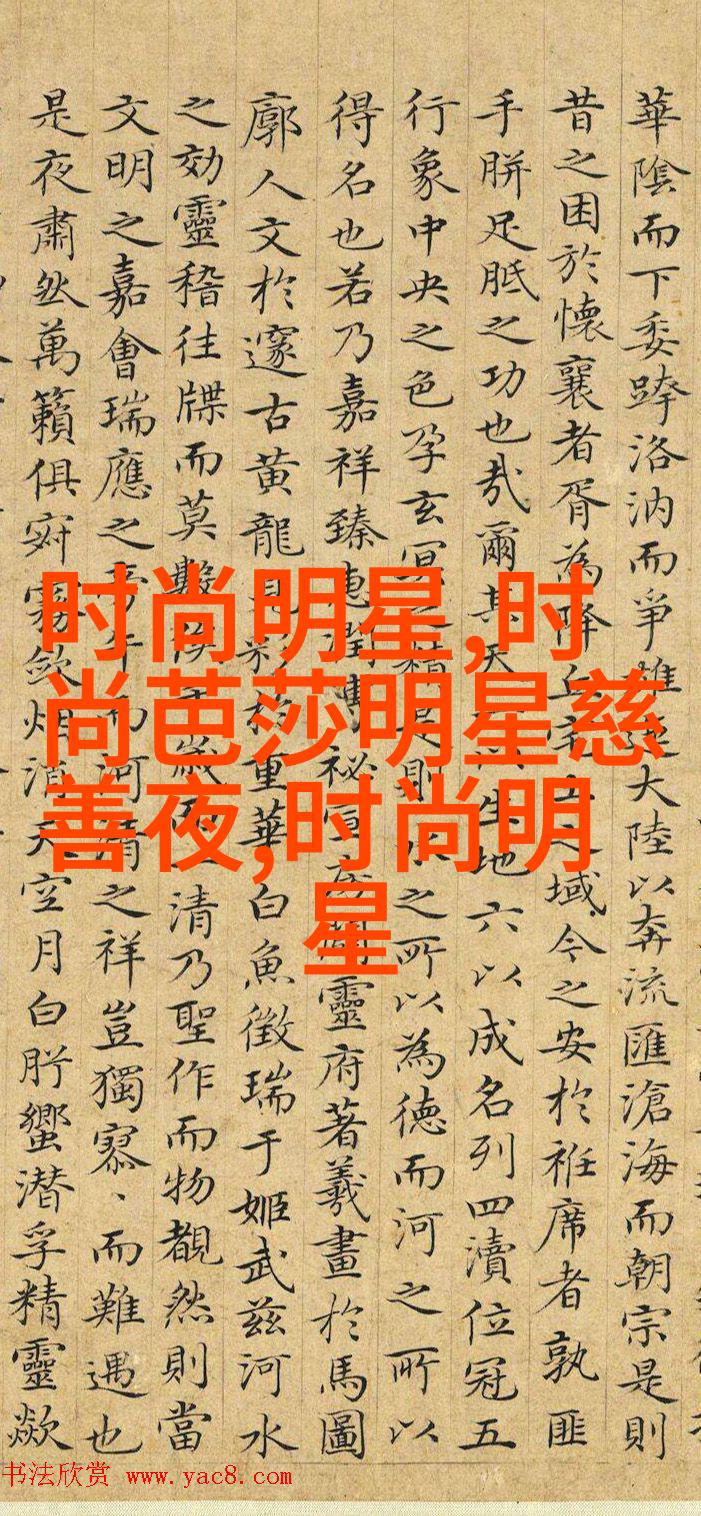 華陰而下委跨洛汭而爭雄大陸以奔流匯滄海而朝宗是則
昔之困於懷襄者胥為降丘宅土之域今之安於袵席者孰匪
手胼足胝之功也哉爾其天一以生地六以成名列四瀆位冠五
行象中央之色孕玄冥之精是則水之所以為德而河之所以
得名也若乃嘉祥臻惠潤溥祕靈府著羲畫於馬圖
廓人文於邃古黃龍見彩於重華白魚徵瑞于姬武茲河水
之効靈稽往牒而莫數俟千歲而一清乃聖作而物覩然則當
文明之嘉會瑞應之而河清之祥豈獨寡、而難遇也
是夜肅然萬籟俱寂霧斂烟消天空月白肸蠁潛孚精靈歘
时尚明星,时
尚芭莎明星慈
善夜,时尚明
星
书法欣赏 www.yac8.com